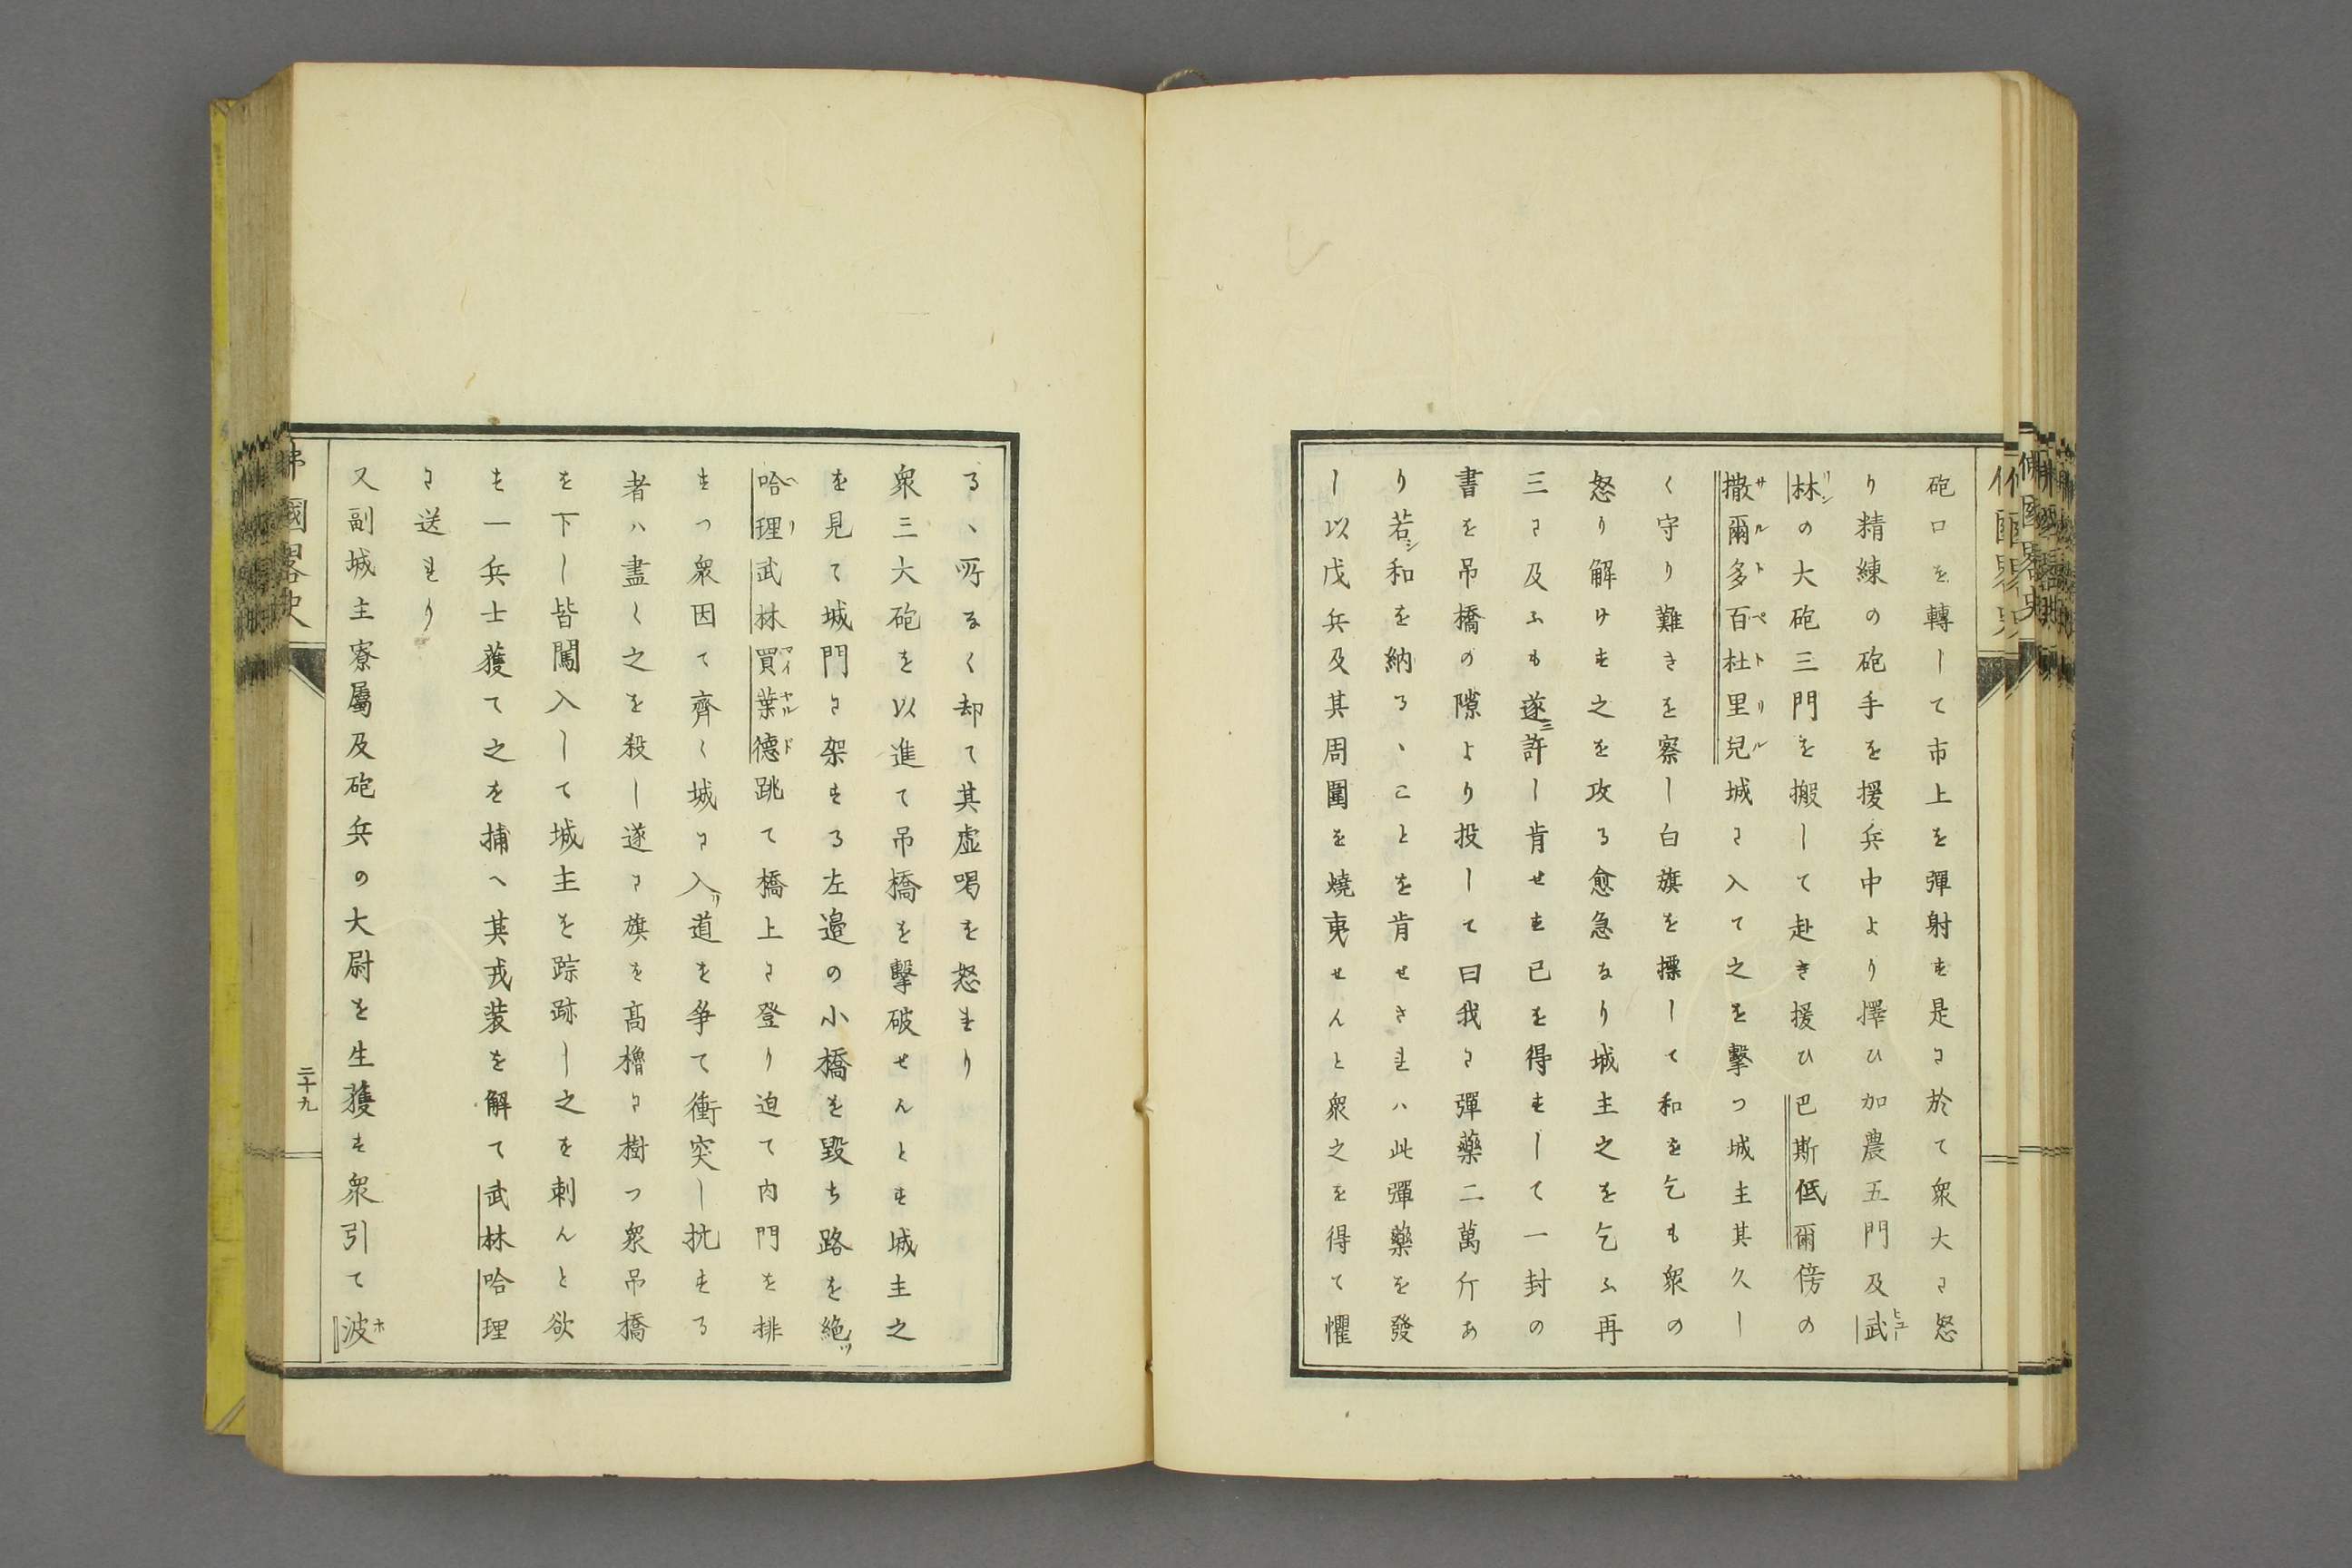 砲口を轉して市上を彈射す是に於て衆大に怒
り精練の砲手を援兵中より擇ひ加農五門及武
林の大砲三門を搬して赴き援ひ巴斯低爾傍の
撒爾多百杜里兒城に入て之を擊つ城主其久し
く守り難きを察し白旗を摽して和を乞も衆の
怒り解けす之を攻る愈急なり城主之を乞ふ再
三に及ふも遂ニ許し肯せす已を得すして一封の
書を吊橋の隙より投して曰我に彈藥二萬斤あ
り若シ和を納るゝことを肯せされハ此彈藥を發
し以戍兵及其周圍を燒夷せんと衆之を得て懼
るゝ所なく却て其虛喝を怒れり
衆三大砲を以進て吊橋を擊破せんとす城主之
を見て城門に架する左邉の小橋を毀ち路を絶ツ
哈理武林買葉德跳て橋上に登り迫て内門を排
すつ衆因て齊く城に入リ道を争て衝突し抗する
者ハ盡く之を殺し遂に旗を高櫓に樹つ衆吊橋
を下し皆闖入して城主を踪跡し之を刺んと欲
す一兵士獲て之を捕へ其戎装を解て武林哈理
に送れり
又副城主寮屬及砲兵の大尉を生獲す衆引て波
佛國畧史
二十九